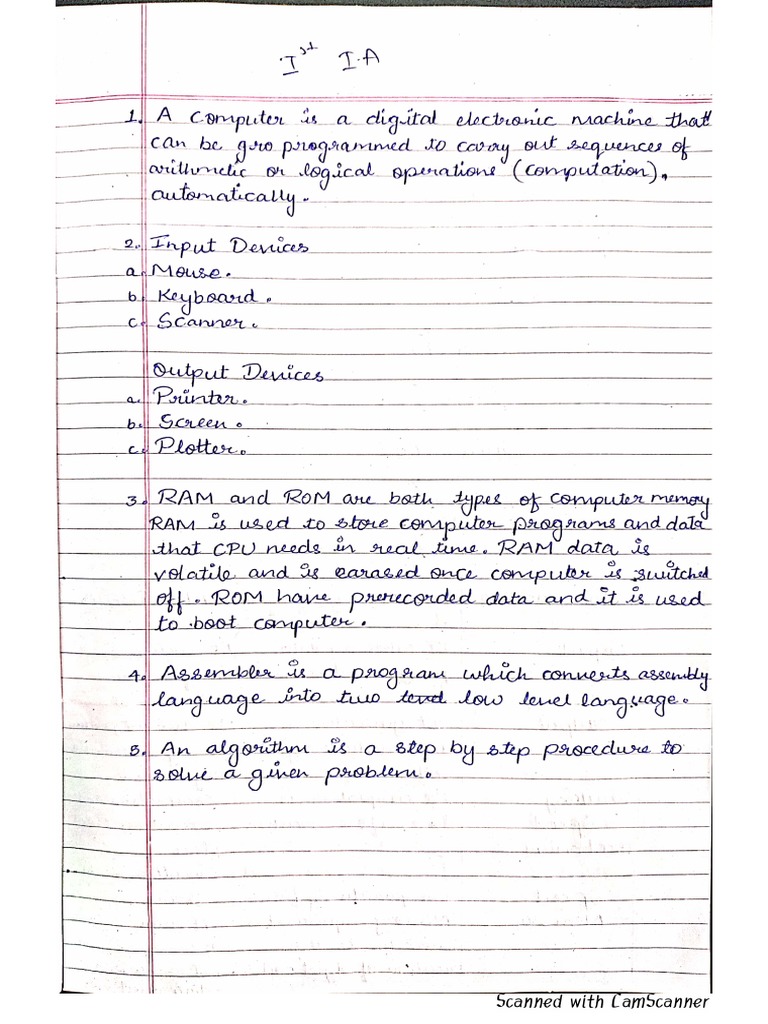 Ist I.A
1. A Computer is a digital electronic machine that
can be gro programmed to carry out sequences of
arithmetic or logical operations (computation),
automatically.
2. Input Devices
a. Mouse.
b. Keyboard.
c. Scanner.
Output Devices
a. Printer.
b. Screen.
c. Plotter.
3. RAM and ROM are both types of computer memory
RAM is used to store computer programs and data
that CPU needs in real time. RAM data is
volatile and is earased once computer is switched
off. ROM have prerecorded data and it is used
to boot computer.
4. Assembler is a program which converts assembly
language into two level low level language.
5. An algorithm is a step by step procedure to
solve a given problem.
Scanned with CamScanner